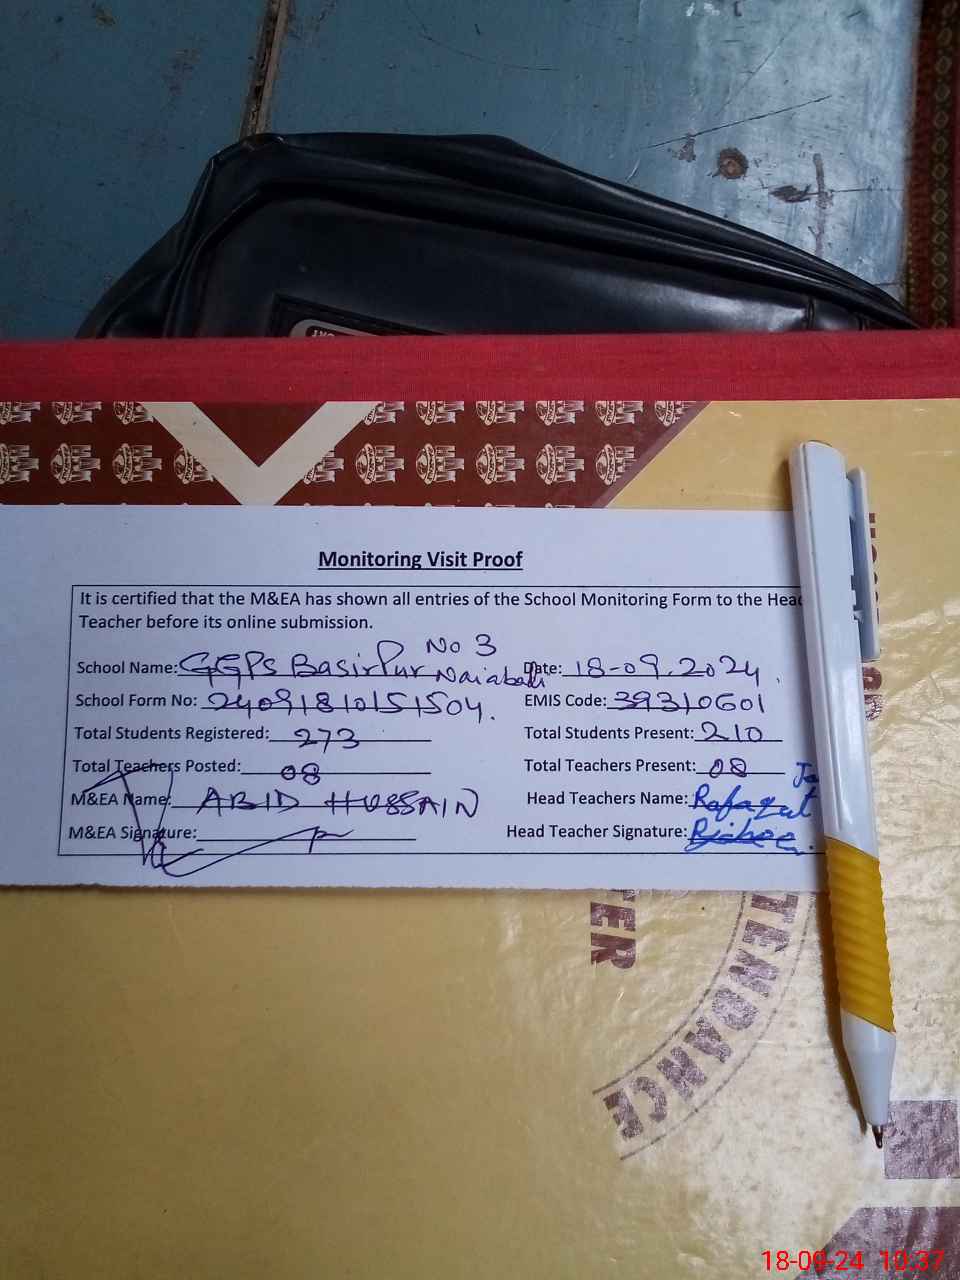 Monitoring Visit Proof
It is certified that the M&EA has shown all entries of the School Monitoring Form to the Head
Teacher before its online submission.
School Name: GGPS BasirPur No 3 Naiabadi Date: 18-09.2024.
School Form No: 24091810151504. EMIS Code: 39310601
Total Students Registered: 273 Total Students Present: 210
Total Teachers Posted: 08 Total Teachers Present: 08
M&EA Name: ABID HUSSAIN Head Teachers Name: Rafaqut
M&EA Signature: Head Teacher Signature:
TER
TTENDANCE
18-09-24 10:37